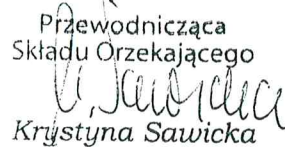 Przewodnicząca
Składu Orzekającego
Krystyna Sawicka